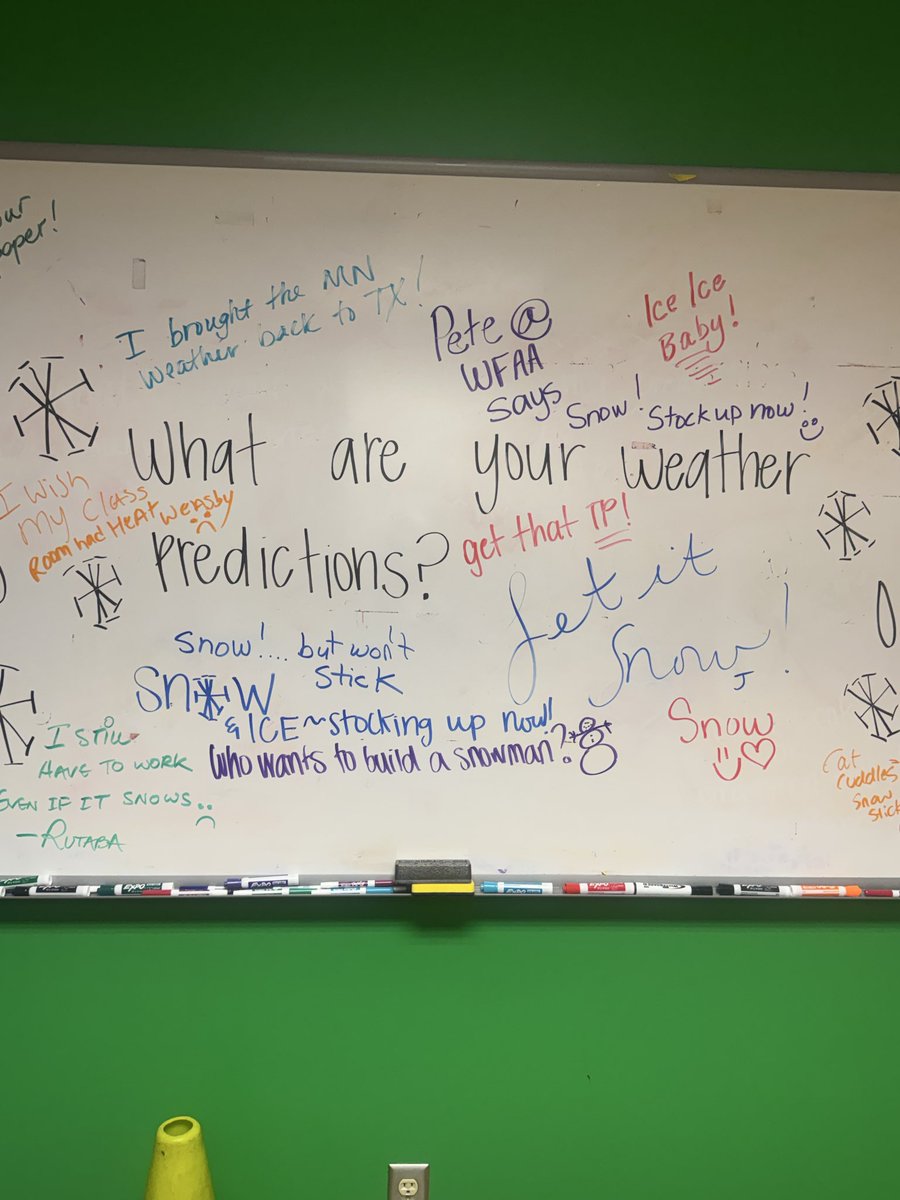 I brought the MN
weather back to TX!
Pete @
WFAA
says
Snow! Stock up now!
Ice Ice
Baby!
What are your weather
Predictions?
I wish
my class
Room had HeAt
get that TP!
Let it
Snow!
J
Snow!... but won't
stick
SNOW
& ICE ~ stocking up now!!
Who wants to build a snowman?
Snow
I still
HAVE TO WORK
EVEN IF IT SNOWS..
-RUTABA
Cat
Cuddles
Snow
EXPO
EXPO
EXPO
EXPO